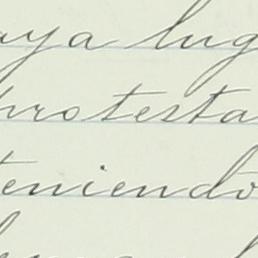 aya lug
protesta
teniendo